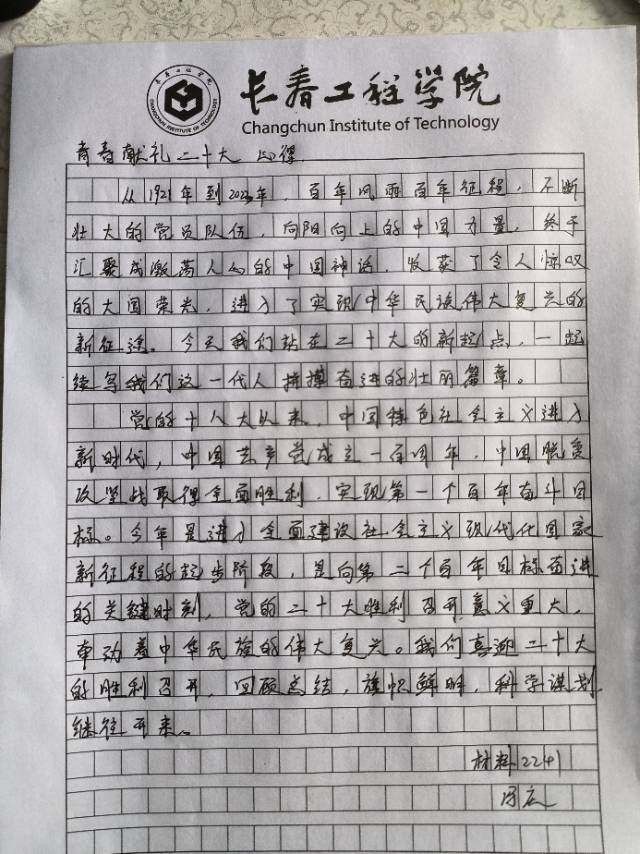 长春工程学院
CHANGCHUN INSTITUTE OF TECHNOLOGY
Changchun Institute of Technology
青春献礼二十大 心得
从1921年到2022年，百年风雨百年征程，不断
壮大的党员队伍，向阳向上的中国力量，终于
汇聚成激荡人心的中国神话，收获了令人惊叹
的大国荣光，进入了实现中华民族伟大复兴的
新征途。今天我们站在二十大的新起点，一起
续写我们这一代人拼搏奋进的壮丽篇章。
党的十八大以来，中国特色社会主义进入
新时代，中国共产党成立一百周年，中国脱贫
攻坚战取得全面胜利，实现第一个百年奋斗目
标。今年是进入全面建设社会主义现代化国家
新征程的起步阶段，是向第二个百年目标奋进
的关键时刻，党的二十大胜利召开意义重大，
牵动着中华民族的伟大复兴。我们喜迎二十大
的胜利召开，回顾总结，旗帜鲜明，科学谋划
继往开来。
材料2241